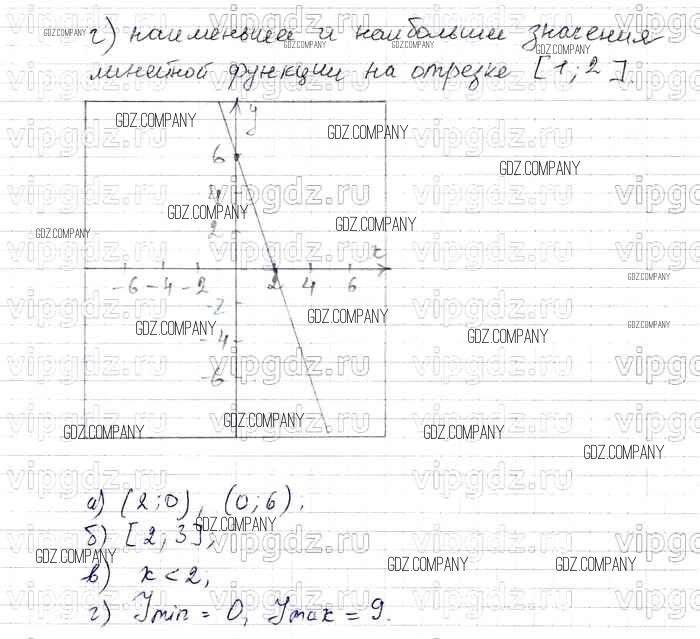 г) наименьшее и наибольшее значения
линейной функции на отрезке [1; 2].
y
6
4
2
x
-6 -4 -2 2 4 6
-2
-4
-6
а) (2; 0), (0; 6),
б) [2; 3],
в) x < 2,
г) Ymin = 0, Ymax = 9.
GDZ.COMPANY
vipgdz.ru